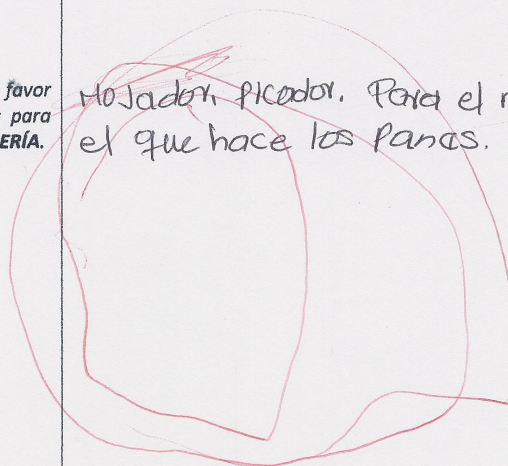 favor
para
ERÍA.
Mojador, picador. Para el
el que hace los Panes.